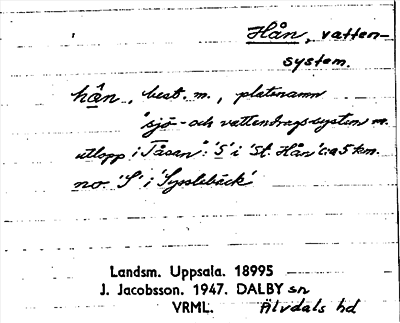 Hån, vatten-
system.
hån, best. m., platsnamn
"sjö- och vattendragssystem m.
utlopp i Tåsan": 'S' i 'St. Hån' c:a 5 km.
no. 'S' i 'Sysslebäck'
Landsm. Uppsala. 18995
J. Jacobsson. 1947. DALBY sn
VRML. Älvdals hd